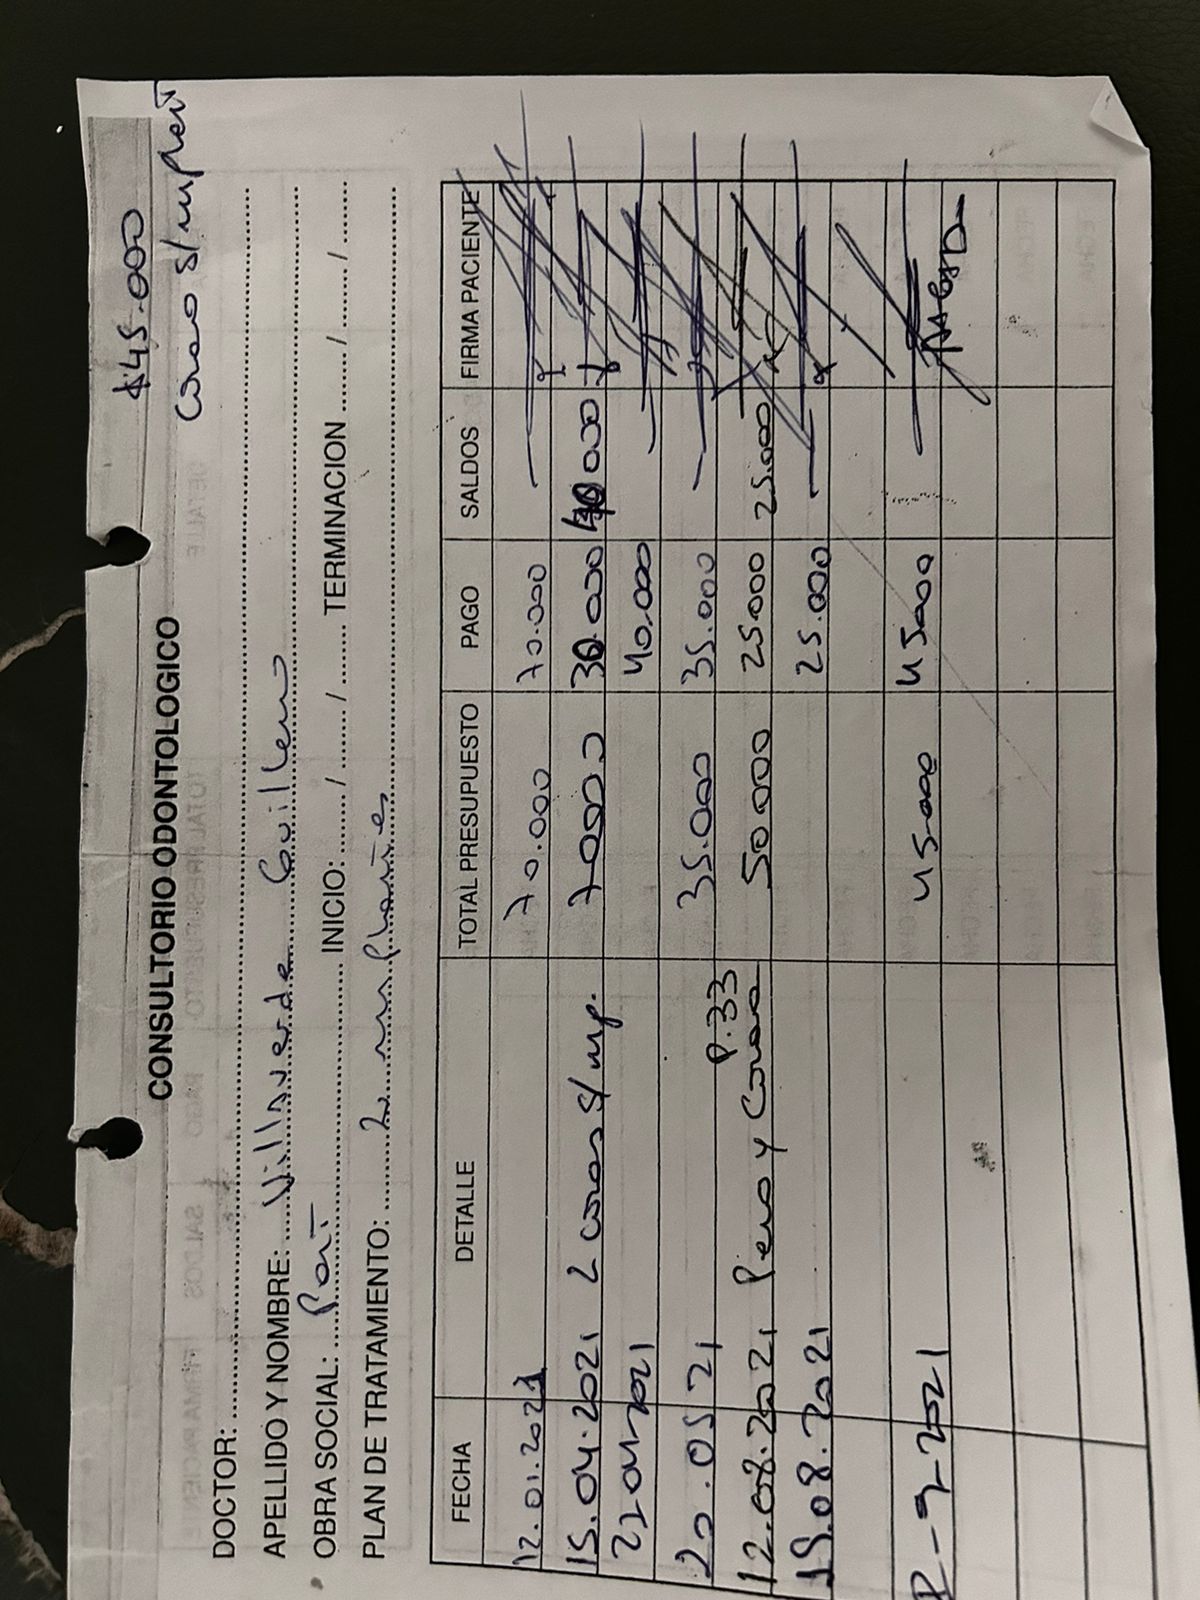 $45.000
Corao s/implant
CONSULTORIO ODONTOLOGICO
DOCTOR:
APELLIDO Y NOMBRE: Villaverde Guillermo
OBRA SOCIAL: Part INICIO: / / TERMINACION / /
PLAN DE TRATAMIENTO: 2 implantes
FECHA DETALLE TOTAL PRESUPUESTO PAGO SALDOS FIRMA PACIENTE
12.01.2021 70.000 70.000 —
15.04.2021 2 coroas s/imp. 70000 30.000 40000
22 04 2021 40.000 —
20.05 21 35.000 35.000 —
P.33
12.08.2021 Perno y Corona 50000 25000 25.000
19.08.2021 25.000 —
2-9-2021 45000 45000 —